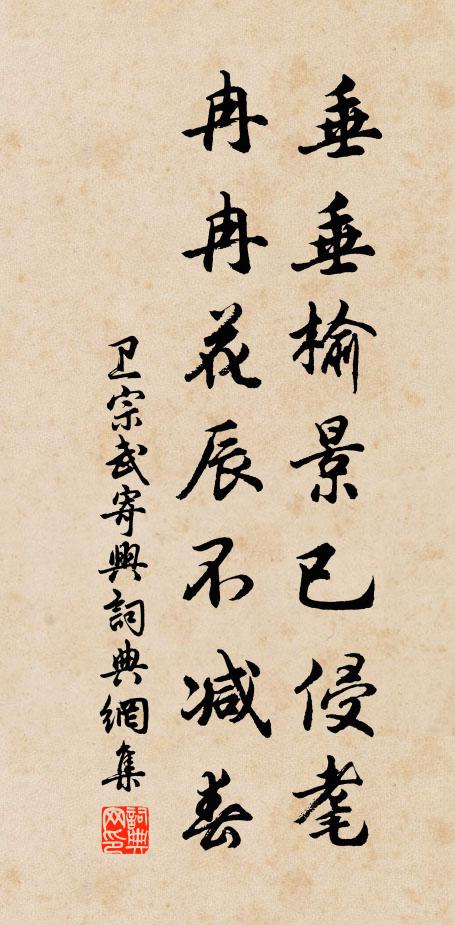 垂垂榆景已侵耄
冉冉花辰不减春
卫宗武寄興詞典網集
詞典网印